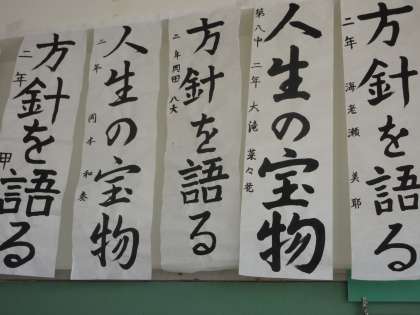 方針を語る
二年 海老瀬 美耶
人生の宝物
第八中 二年 大滝 菜々花
方針を語る
二年
人生の宝物
二年 岡本 和奏
方針を語る
二年 甲